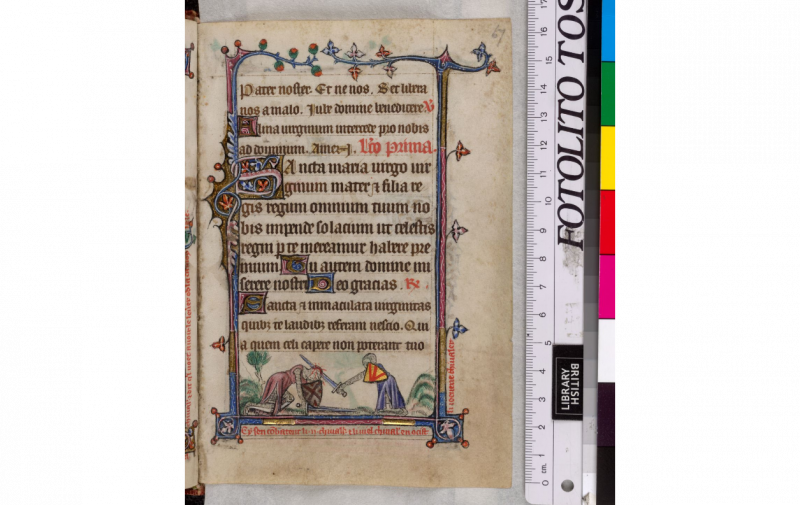 67
Pater noster. Et ne nos. Set libera
nos a malo. Iube domine benedicere
Alma virginum intercede pro nobis
ad dominum. Amen. Lc̄o prima.
Sancta maria virgo vir
ginum mater ⁊ filia re
gis regum omnium tuum no
bis impende solacium ut celestis
regni p te mereamur habere pre
mium Tu autem domine mi
serere nostri Deo gracias. R.
Sancta ⁊ immaculata virginitas
quibȝ te laudibȝ referam nescio. Qui
a quem celi capere non poterant tuo
FOTOLITO TOS
BRITISH
LIBRARY
0 cm. 1 2 3 4 5 6 7 8 9 10 11 12 13 14 15 16 17